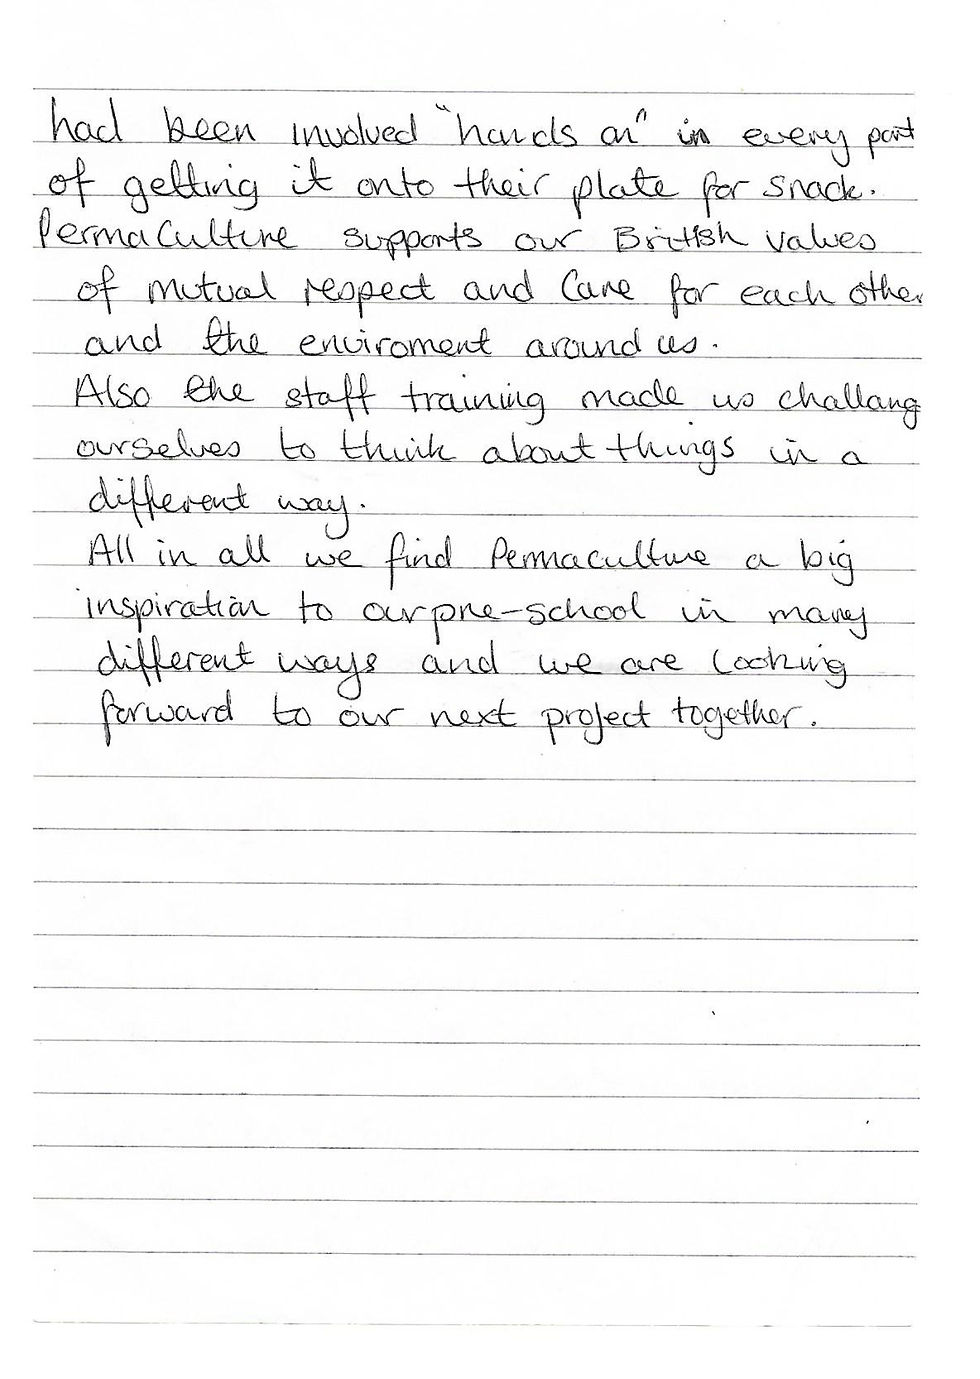 had been involved "hands on" in every part
of getting it onto their plate for snack.
Permaculture supports our British values
of mutual respect and care for each other
and the enviroment around us.
Also the staff training made us challang
ourselves to think about things in a
different way.
All in all we find Permaculture a big
inspiration to our pre-school in many
different ways and we are looking
forward to our next project together.